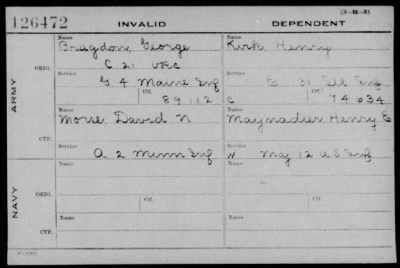 (3-H-3)
126472 INVALID DEPENDENT
Name Name
Bragdon, George Kirk Henry
ORIG. C 21 VRC
Service Service
G 4 Maine Inf E 31 Ill Inf
ARMY Ctf. Ctf.
89112 C 74634
Name Name
Morse David N Maynadier Henry E
CTF.
Service Service
A 2 Minn Inf W Maj 12 U S Inf
Name Name
NAVY ORIG.
Ctf. Ctf.
Name Name
CTF.